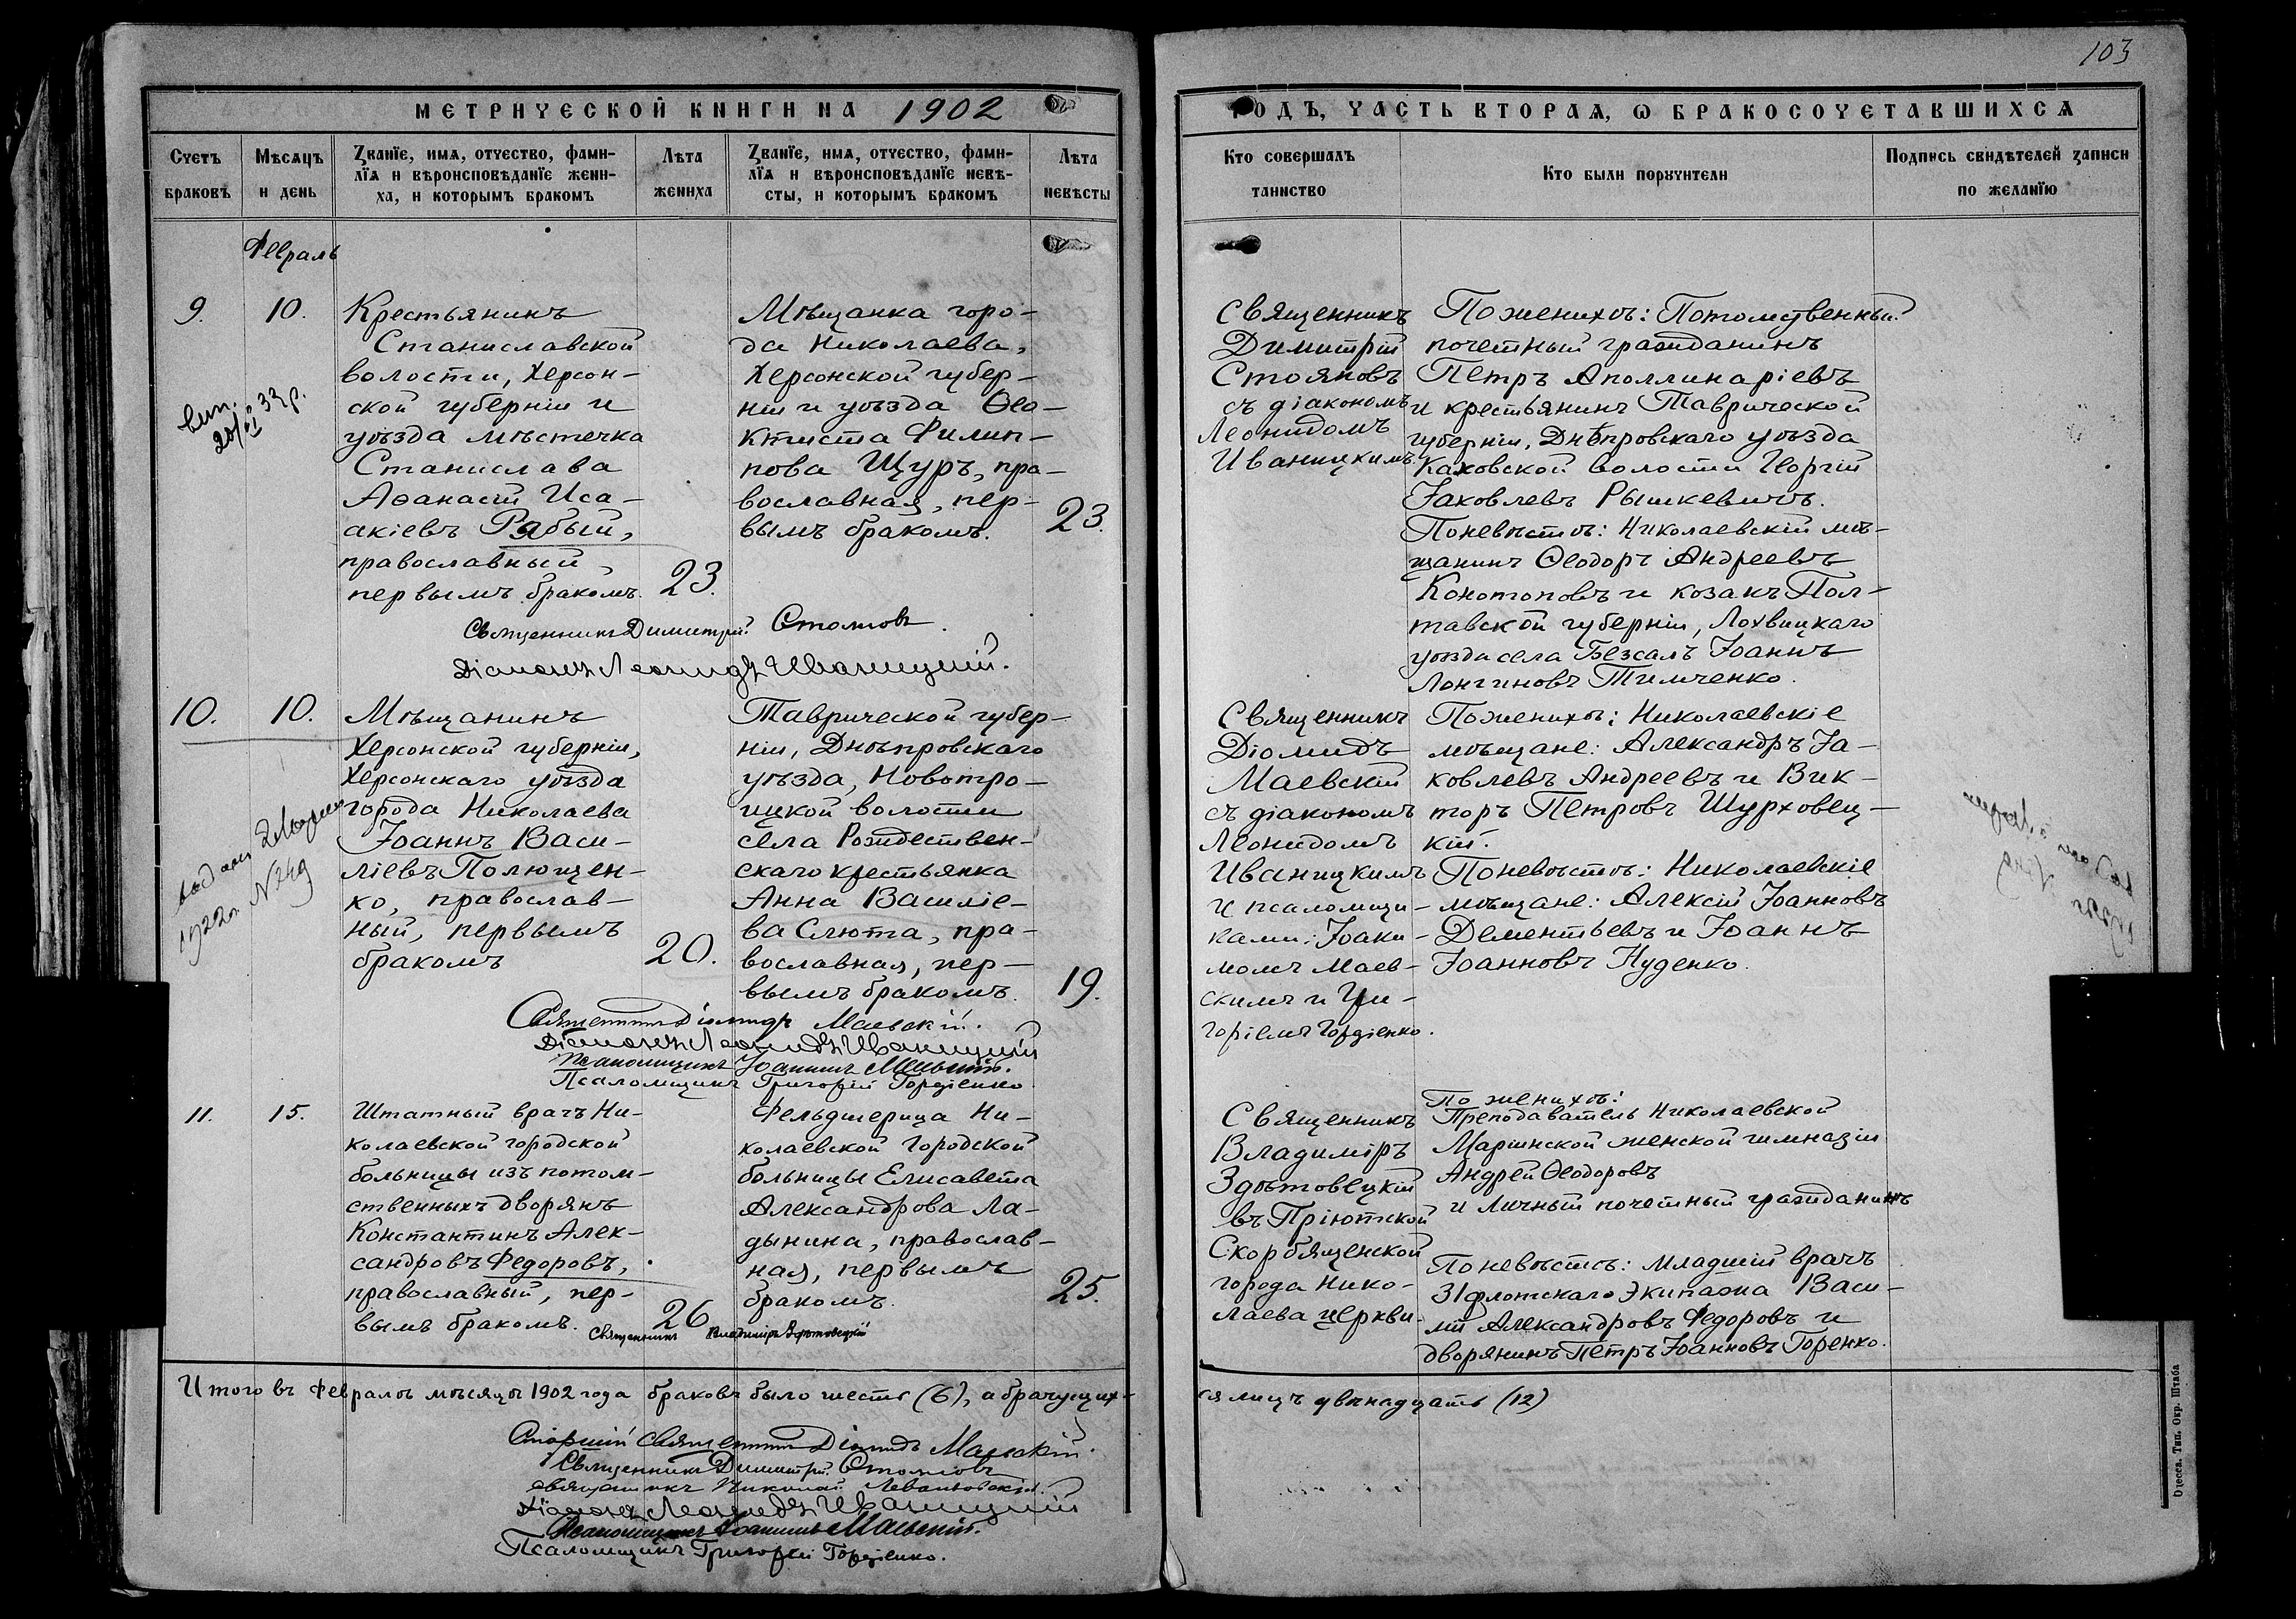 103
МЕТРИЧЕСКОЙ КНИГИ НА 1902
ГОДЪ, ЧАСТЬ ВТОРАѦ, Ѡ БРАКОСОЧЕТАВШИХСѦ
Счетъ браковъ
Мѣсяцъ и день
Званїе, имѧ, отчество, фами-
лїѧ и вѣроисповѣданїе жени-
ха, и которымъ бракомъ
Лѣта жениха
Званїе, имѧ, отчество, фами-
лїѧ и вѣроисповѣданїе невѣ-
сты, и которымъ бракомъ
Лѣта невѣсты
Кто совершалъ таинство
Кто были поручители
Подпись свидѣтелей записи по желанїю
Февраль
9.
10.
Крестьянинъ
Станиславской
волости, Херсон-
ской губерніи и
уѣзда мѣстечка
Станислава
Аѳанасій Иса-
акіевъ Рябый,
православный
первымъ бракомъ.
23.
Мѣщанка горо-
да Николаева,
Херсонской губер-
ніи и уѣзда Ѳео-
ктиста Филип-
пова Щуръ, пра-
вославная, пер-
вымъ бракомъ.
23.
Священникъ Димитрій Стояновъ.
Діаконъ Леонидъ Иваницкій.
Священникъ
Димитрій
Стояновъ
съ діакономъ
Леонидомъ
Иваницкимъ.
По женихѣ: Потомственный
почетный гражданинъ
Петръ Аполлинаріевъ
и крестьянинъ Таврической
губерніи, Днѣпровскаго уѣзда
Каховской волости Георгій
Іаковлевъ Рышкевичъ.
По невѣстѣ: Николаевскій мѣ-
щанинъ Ѳеодоръ Андреевъ
Конотоповъ и козакъ Пол-
тавской губерніи, Лохвицкаго
уѣзда села Безсалъ Іоаннъ
Лонгиновъ Тимченко.
10.
10.
Мѣщанинъ
Херсонской губерніи,
Херсонскаго уѣзда
города Николаева
Іоаннъ Васи-
ліевъ Полющен-
ко, православ-
ный, первымъ
бракомъ
20.
Таврической губер-
ніи, Днѣпровскаго
уѣзда, Новотро-
ицкой волости
села Рождествен-
скаго крестьянка
Анна Василіе-
ва Слюта, пра-
вославная, пер-
вымъ бракомъ.
19.
Священникъ Діомидъ Маевскій.
Діаконъ Леонидъ Иваницкій
Псаломщикъ Іоакимъ Маевскій.
Псаломщикъ Григорій Гордіенко
Священникъ
Діомидъ
Маевскій
съ діакономъ
Леонидомъ
Иваницкимъ
и псаломщи-
ками: Іоаки-
момъ Маев-
скимъ и Гри-
горіемъ Гордіенко.
По женихѣ: Николаевскіе
мѣщане: Александръ Іа-
ковлевъ Андреевъ и Вик-
торъ Петровъ Шурховец-
кій.
По невѣстѣ: Николаевскіе
мѣщане: Алексій Іоанновъ
Дементьевъ и Іоаннъ
Іоанновъ Нуденко.
11.
15.
Штатный врачъ Ни-
колаевской городской
больницы изъ потом-
ственныхъ дворянъ
Константинъ Алек-
сандровъ Федоровъ,
православный, пер-
вымъ бракомъ.
26
Фельдшерица Ни-
колаевской Городской
больницы Елисавета
Александрова Ла-
дынина, православ-
ная, первымъ
бракомъ.
25.
Священникъ Владиміръ Здѣтовецкій
Священникъ
Владиміръ
Здѣтовецкій
въ Пріютской
Скорбященской
города Нико-
лаева церкви.
По женихѣ:
Преподаватель Николаевской
Маріинской женской гимназіи
Андрей Ѳеодоровъ
и Личный почетный гражданинъ
По невѣстѣ: Младшій врачъ
31 флотскаго Экипажа Васи-
лій Александровъ Федоровъ и
дворянинъ Петръ Іоанновъ Горенко.
Итого въ Февралѣ мѣсяцѣ 1902 года браковъ было шесть (6), а брачущих-
ся лицъ двѣнадцать (12)
Старшій Священникъ Діомидъ Маевскій.
Священникъ Димитрій Стояновъ
Священникъ Николай
Діаконъ Леонидъ Иваницкій
Псаломщикъ Іоакимъ Маевскій.
Псаломщикъ Григорій Гордіенко.
Одесса. Тип. Окр. Штаба